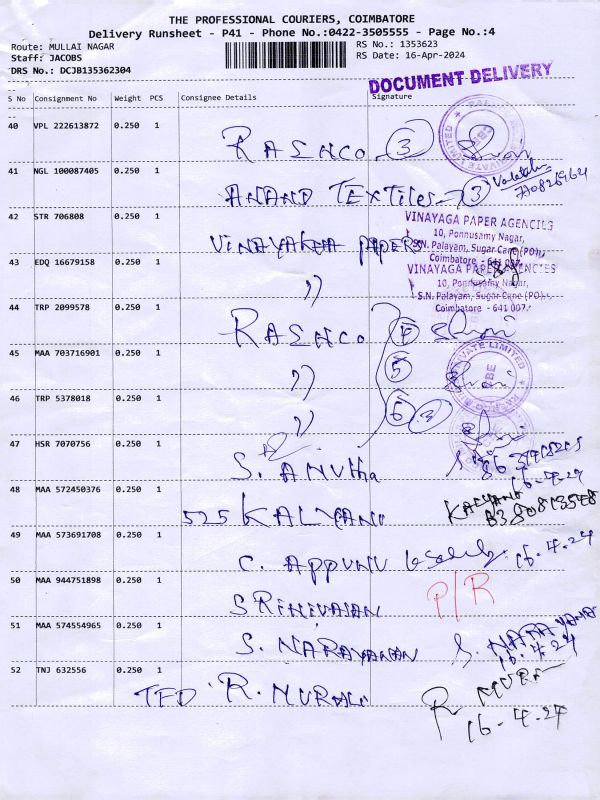 THE PROFESSIONAL COURIERS, COIMBATORE
Delivery Runsheet - P41 - Phone No.:0422-3505555 - Page No.:4
Route: MULLAI NAGAR RS No.: 1353623
Staff: JACOBS RS Date: 16-Apr-2024
DRS No.: DCJB135362304
DOCUMENT DELIVERY
S No Consignment No Weight PCS Consignee Details Signature
40 VPL 222613872 0.250 1 RASHCO 3
41 NGL 100087405 0.250 1 ANAND TEXTiles 3
42 STR 706808 0.250 1 VINAYAKA PAPERS
VINAYAGA PAPER AGENCIES
10, Ponnusamy Nagar,
S.N. Palayam, Sugar Cane (PO),
Coimbatore - 641 007.
43 EDQ 16679158 0.250 1 "
VINAYAGA PAPER AGENCIES
10, Ponnusamy Nagar,
S.N. Palayam, Sugar Cane (PO),
Coimbatore - 641 007.
44 TRP 2099578 0.250 1 RASHCO 4
45 MAA 703716901 0.250 1 " 5
46 TRP 5378018 0.250 1 " 6 3
47 HSR 7070756 0.250 1 S. ANUtha
16-4-24
48 MAA 572450376 0.250 1 525 KALYANI KALYANI
49 MAA 573691708 0.250 1 C. APPUNU 16-4-24
50 MAA 944751898 0.250 1 SRINIVASAN P/R
51 MAA 574554965 0.250 1 S. NARAYANAN S. NARAYANAN
16-4-24
52 TNJ 632556 0.250 1 TED R. MURALI R MURA
16-4-24